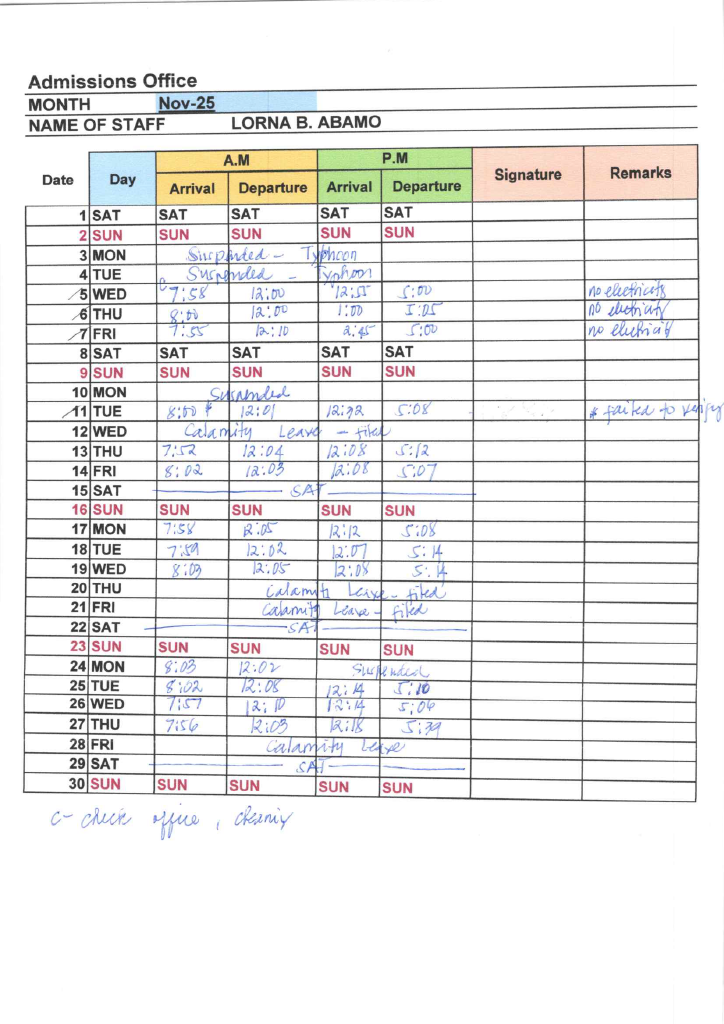 Admissions Office
MONTH Nov-25
NAME OF STAFF LORNA B. ABAMO
Date Day A.M P.M Signature Remarks
Arrival Departure Arrival Departure
1 SAT SAT SAT SAT SAT
2 SUN SUN SUN SUN SUN
3 MON Suspended - Typhoon
4 TUE Suspended - Typhoon
5 WED C 7:58 12:00 12:55 5:00 no electricity
6 THU 8:00 12:00 1:00 5:05 no electricity
7 FRI 7:55 12:10 2:45 5:00 no electricity
8 SAT SAT SAT SAT SAT
9 SUN SUN SUN SUN SUN
10 MON Suspended
11 TUE 8:00 * 12:01 5:08 * failed to verify
12 WED Calamity Leave - filed
13 THU 7:52 12:04 12:08 5:12
14 FRI 8:02 12:03 12:08 5:07
15 SAT SAT
16 SUN SUN SUN SUN SUN
17 MON 7:58 12:05 12:12 5:08
18 TUE 7:59 12:02 12:07 5:14
19 WED 8:03 12:05 12:08 5:14
20 THU Calamity Leave - filed
21 FRI Calamity Leave - filed
22 SAT SAT
23 SUN SUN SUN SUN SUN
24 MON 8:03 12:02 Suspended
25 TUE 8:02 12:08 12:14 5:10
26 WED 7:57 12:10 12:14 5:06
27 THU 7:56 12:03 12:18 5:39
28 FRI Calamity Leave
29 SAT SAT
30 SUN SUN SUN SUN SUN
C- check office,